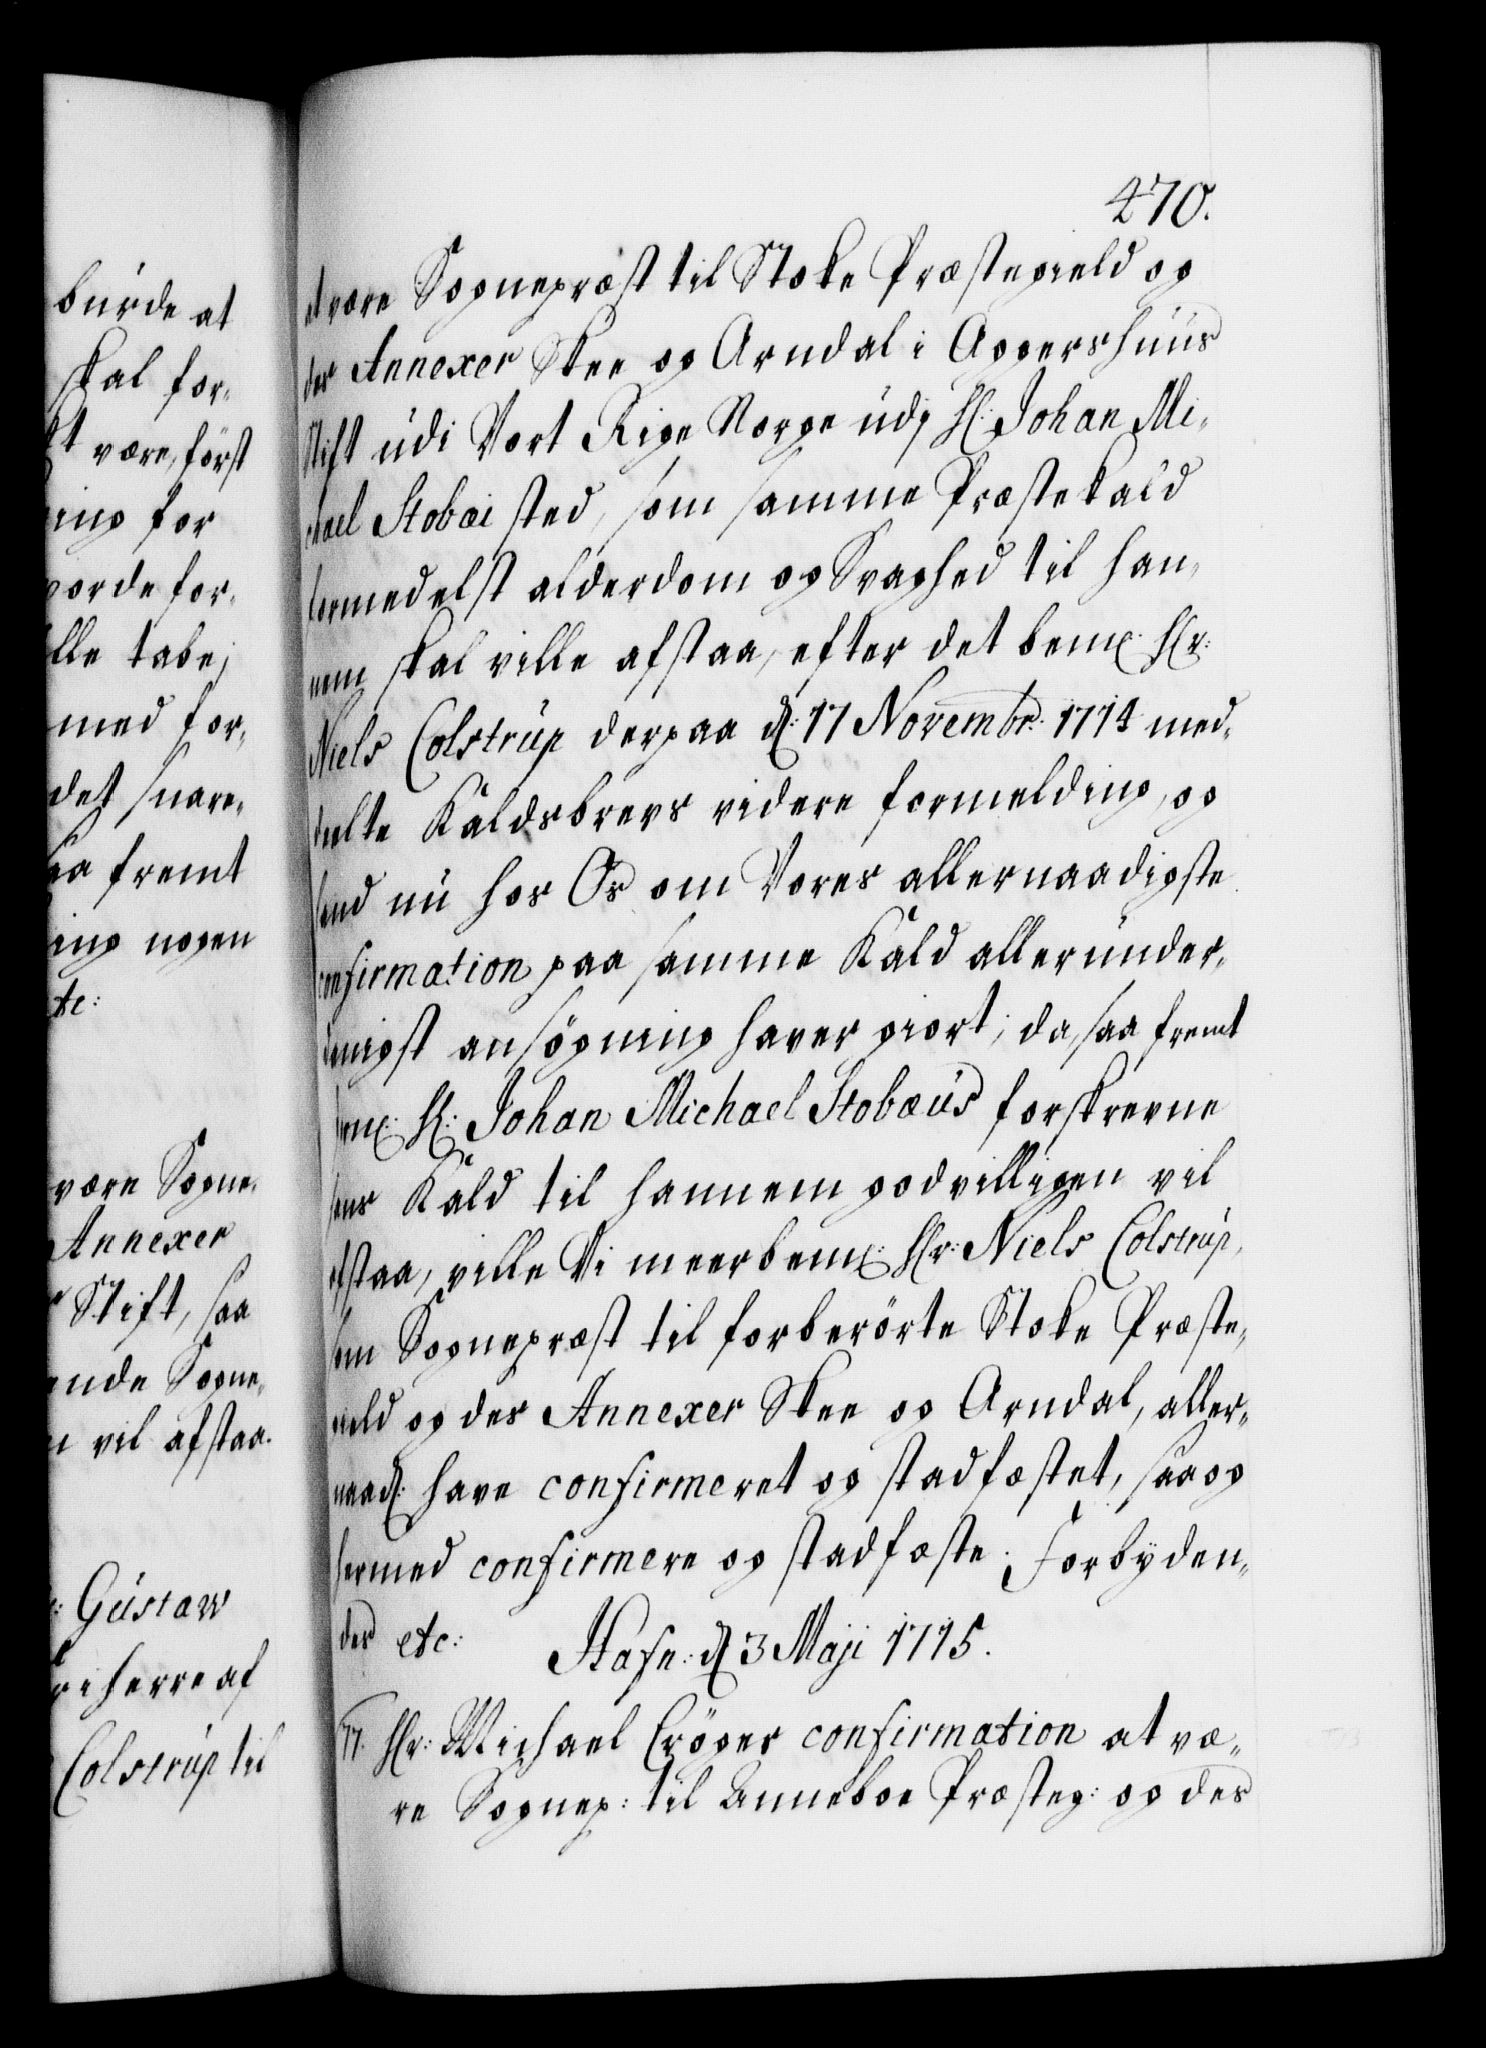 burde at
skal for-
være, först
for
vorde for-
tabe,
med for-
det snare-
fremt
nogen
etc:
være Sogne-
Annexer
Stift, saa
Sogne-
vil afstaa.
Gustaw
Friherre af
Colstrup til
470.
at være Sognepræst til Stoke Præstegield og
des Annexer Skee og Arndal i Aggershuus
Stift udi Vort Rige Norge udj Hr: Johan Mi-
chael Stobæi sted, som samme Præstekald
formedelst alderdom og Svaghed til han-
nem skal ville afstaa, efter det bem: Hr:
Niels Colstrup derpaa d: 17 Novembr: 1714 med-
deelte Kaldsbrevs videre formelding, og
hand nu hos Os om Vores allernaadigste
confirmation paa samme Kald allerunder-
danigst ansögning haver giort; da, saa fremt
bem: Hr: Johan Michael Stobæus forskrevne
hans Kald til hannem godvilligen vil
afstaa, ville Vi meerbem: Hr: Niels Colstrup,
som Sognepræst til forberörte Stoke Præste-
gield og des Annexer Skee og Arndal, aller-
naad: have confirmeret og stadfæstet, saa og
hermed confirmere og stadfæste. Forbyden-
des etc: Hafn: d 3 Maji 1715.
77. Hr: Michael Cröger confirmation at væ-
re Sognep: til Anneboe Præsteg: og des